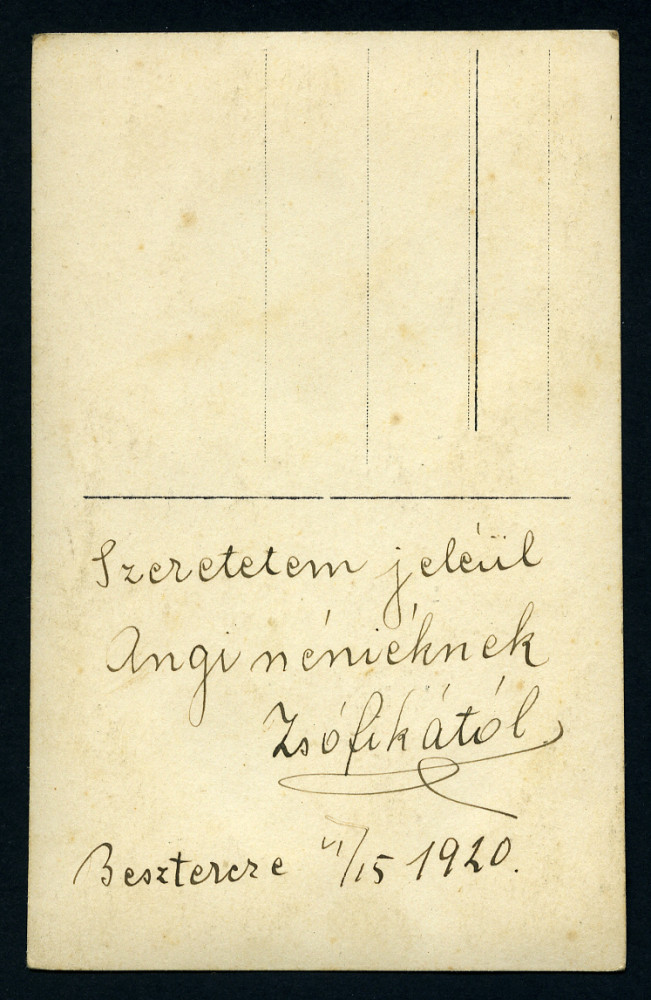 Szeretetem jeléül
Angi néniéknek
Zsófikától
Besztercze VI/15 1920.